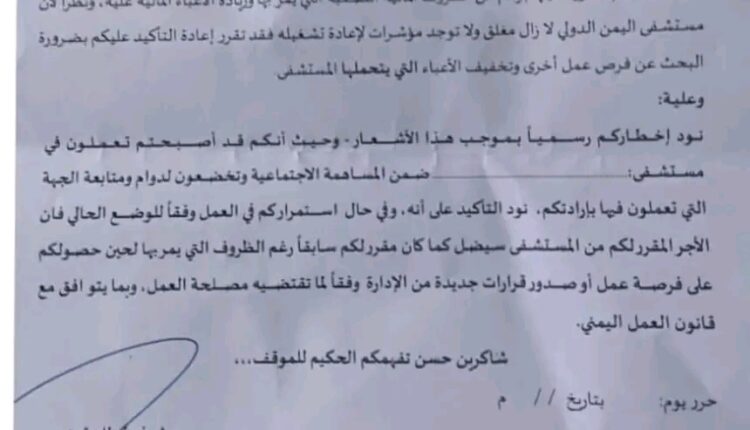 يمر بها وزيادة الأعباء المالية عليه، ونظرا لأن
مستشفى اليمن الدولي لا زال مغلق ولا توجد مؤشرات لإعادة تشغيله فقد تقرر إعادة التأكيد عليكم بضرورة
البحث عن فرص عمل أخرى وتخفيف الأعباء التي يتحملها المستشفى.
وعلية:
نود إخطاركم رسمياً بموجب هذا الأشعار - وحيث أنكم قد أصبحتم تعملون في
مستشفى: ضمن المساهمة الاجتماعية وتخضعون لدوام ومتابعة الجهة
التي تعملون فيها بإرادتكم، نود التأكيد على أنه، وفي حال استمراركم في العمل وفقاً للوضع الحالي فان
الأجر المقرر لكم من المستشفى سيضل كما كان مقرر لكم سابقاً رغم الظروف التي يمر بها لحين حصولكم
على فرصة عمل أو صدور قرارات جديدة من الإدارة وفقاً لما تقتضيه مصلحة العمل، وبما يتوافق مع
قانون العمل اليمني.
شاكرين حسن تفهمكم الحكيم للموقف...
حرر يوم: بتاريخ / / م